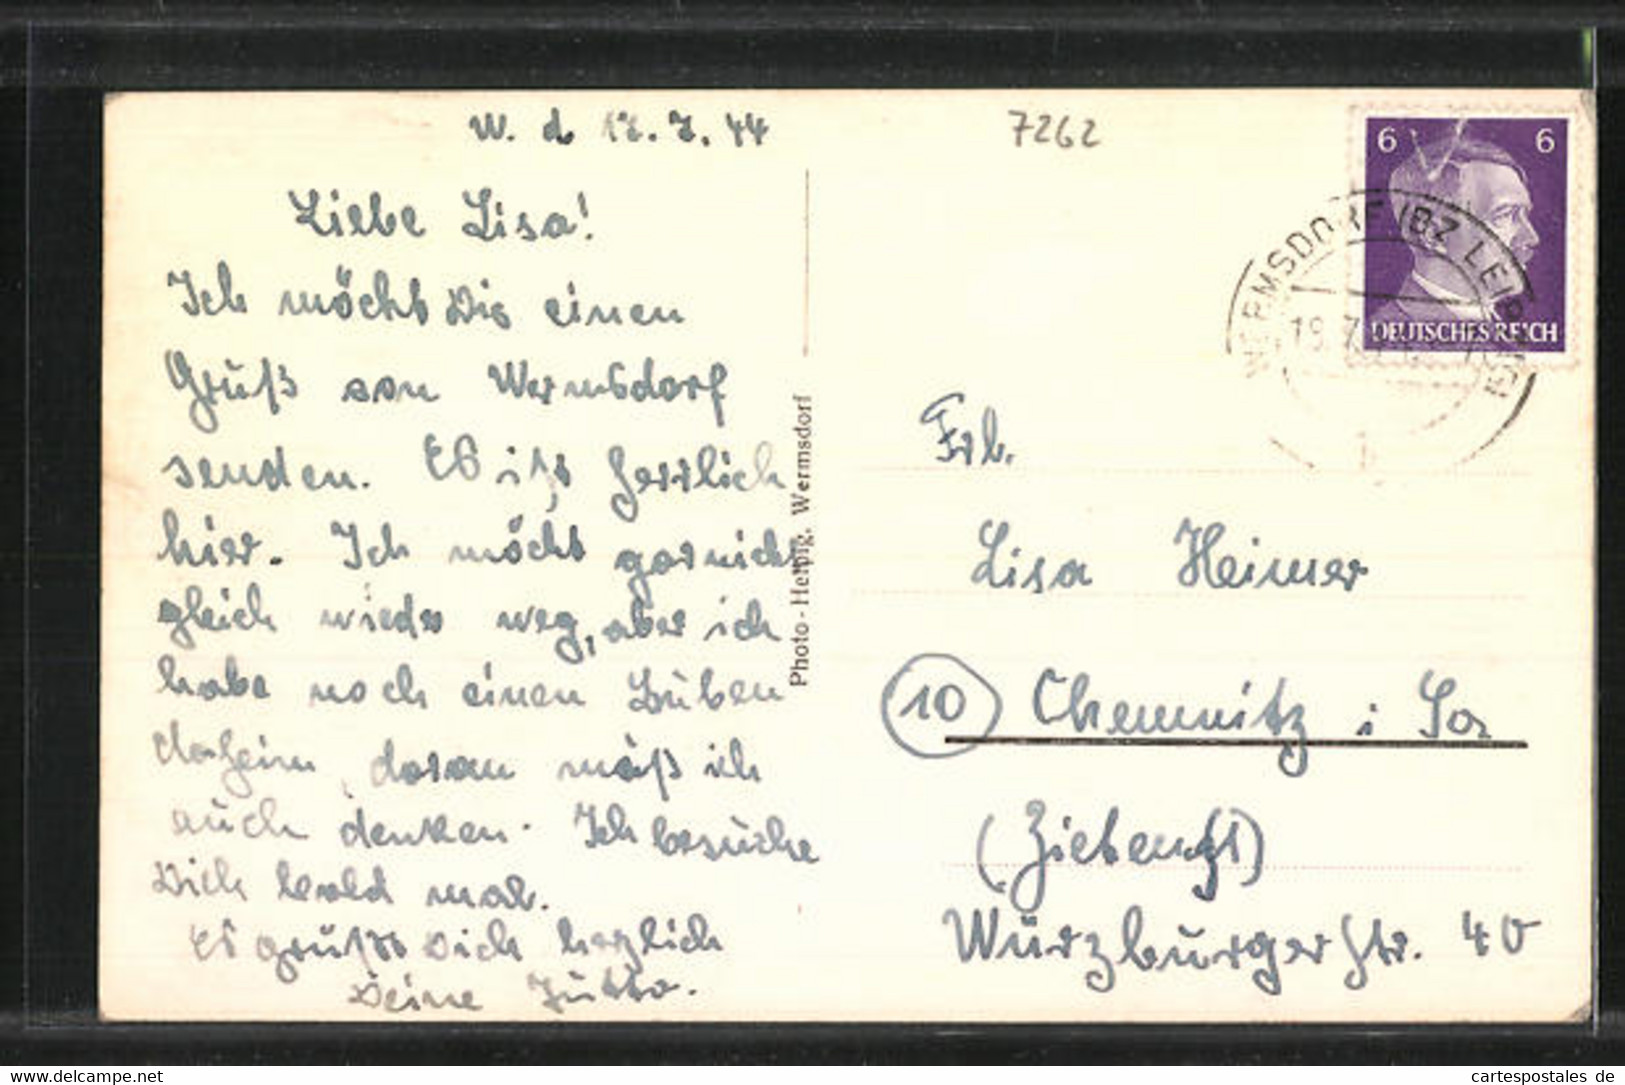 W. d 17. 7. 44
Liebe Lisa!
Ich möcht Dir einen
Gruß von Wermsdorf
senden. Es ist herrlich
hier. Ich möcht garnicht
gleich wieder weg, aber ich
habe noch einen Buben
daheim, daran muß ich
auch denken. Ich besuche
Dich bald mal.
Es grüßt Dich herzlich
Deine Jutta.
Photo-Helbig, Wermsdorf
7262
6 6
DEUTSCHES REICH
WERMSDORF (BZ LEIPZIG)
19.7.
Frl.
Lisa Heimer
10 Chemnitz i Sa
Würzburger Str. 40
cartespostales.de
www.delcampe.net
cartespostales de